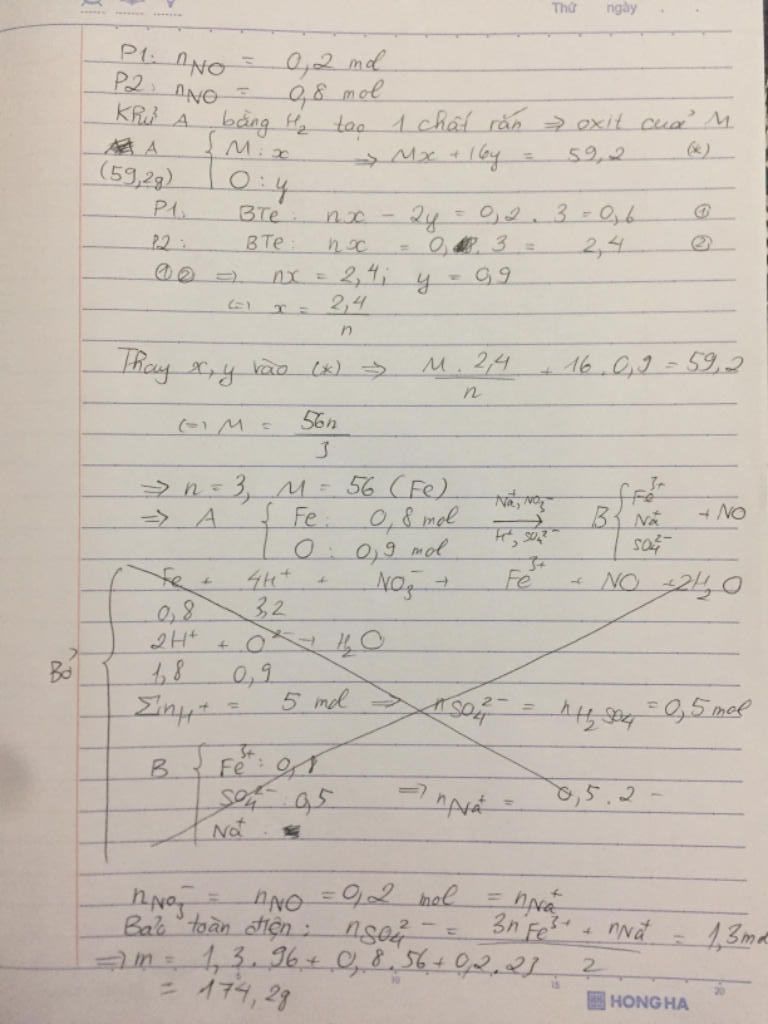 Thứ ngày . .
P1: nNO = 0,2 mol
P2: nNO = 0,8 mol
Khử A bằng H2 tạo 1 chất rắn => oxit của M
A { M: x => Mx + 16y = 59,2 (*)
(59,2g) O: y
P1: BTe: nx - 2y = 0,2 . 3 = 0,6 ①
P2: BTe: nx = 0,8 . 3 = 2,4 ②
①② => nx = 2,4; y = 0,9
(=) x = 2,4/n
Thay x, y vào (*) => M . 2,4/n + 16 . 0,9 = 59,2
(=) M = 56n/3
=> n = 3, M = 56 (Fe)
=> A { Fe: 0,8 mol —Na+, NO3-/H+, SO4 2-→ B { Fe3+ Na+ SO4 2- + NO
O: 0,9 mol
Fe + 4H+ + NO3- → Fe3+ + NO + 2H2O
0,8 3,2
2H+ + O2- → H2O
Bỏ 1,8 0,9
ΣnH+ = 5 mol => nSO4 2- = nH2SO4 = 0,5 mol
B { Fe3+: 0,8
SO4 2-: 0,5 => nNa+ = 0,5 . 2 -
Na+ :
nNO3- = nNO = 0,2 mol = nNa+
Bảo toàn điện: nSO4 2- = (3nFe3+ + nNa+)/2 = 1,3 mol
=> m = 1,3 . 96 + 0,8 . 56 + 0,2 . 23
= 174,2g
10 15 20
HONG HA